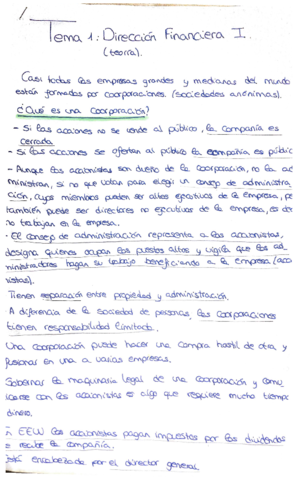 Tema 1: Dirección Financiera I.
(teoría).
Casi todas las empresas grandes y medianas del mundo
están formadas por coorporaciones. (sociedades anónimas).
¿Qué es una coorporación?
- Si las acciones no se vende al público, la compañía es
cerrada.
- Si las acciones se ofertan al público la compañía es públic
- Aunque los accionistas son dueño de la coorporación, no la ad
ministran, si no que votan para elegir un consejo de administra
ción, cuyos miembros pueden ser altos ejecutivos de la empresa, pe
también puede ser directores no ejecutivos de la empresa, es de
no trabajan en la empresa.
- El consejo de administración representa a los accionistas,
designa quienes ocupan los puestos altos y vigila que los ad-
ministradores hagan su trabajo beneficiando a la empresa (acc
istas).
Tienen separación entre propiedad y administración.
A diferencia de la sociedad de personas, las coorporaciones
tienen responsabilidad limitada.
Una coorporación puede hacer una compra hostil de otra, y
fusionar en una a varias empresas.
Gobernar la maquinaria legal de una coorporación y comu
icarse con los accionistas es algo que requiere mucho tiempo
dinero.
n EEUU los accionistas pagan impuestos por los dividendos
e recibe la compañía.
encabezada por el director general